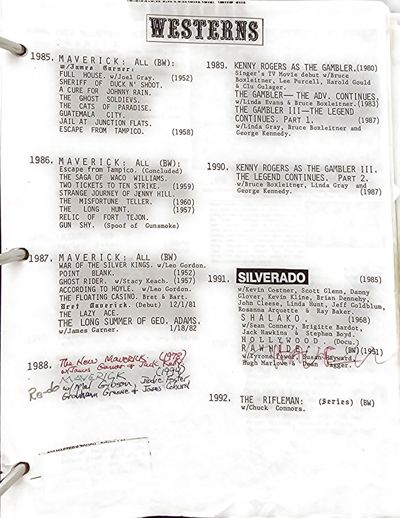 WESTERNS
1985. MAVERICK: ALL (BW):
w/James Garner:
FULL HOUSE. w/Joel Gray. (1952)
SHERIFF OF DUCK N' SHOOT.
A CURE FOR JOHNNY RAIN.
THE GHOST SOLDIEVS.
THE CATS OF PARADISE.
GUATEMALA CITY.
JAIL AT JUNCTION FLATS.
ESCAPE FROM TAMPICO. (1958)
1986. MAVERICK: ALL (BW):
Escape from Tampico. (Concluded)
THE SAGA OF WACO WILLIAMS.
TWO TICKETS TO TEN STRIKE. (1959)
STRANGE JOURNEY OF JENNY HILL.
THE MISFORTUNE TELLER. (1960)
THE LONG HUNT. (1957)
RELIC OF FORT TEJON.
GUN SHY. (Spoof of Gunsmoke)
1987. MAVERICK: ALL (BW)
WAR OF THE SILVER KINGS. w/Leo Gordon.
POINT BLANK. (1952)
GHOST RIDER. w/Stacy Keach. (1957)
ACCORDING TO HOYLE. w/Leo Gordon.
THE FLOATING CASINO. Bret & Bart.
Bret Maverick. (Debut) 12/1/81
THE LAZY ACE.
THE LONG SUMMER OF GEO. ADAMS.
w/James Garner. 1/18/82
1988. The New Maverick (1978)
w/James Garner & Jack
MAVERICK (1994)
Re-do w/Mel Gibson, Jodie Foster
Graham Greene & James Coburn
1989. KENNY ROGERS AS THE GAMBLER. (1980)
Singer's TV Movie debut w/Bruce
Boxleitner, Lee Purcell, Harold Gould
& Clu Gulager.
THE GAMBLER—THE ADV. CONTINUES.
w/Linda Evans & Bruce Boxleitner. (1983)
THE GAMBLER III—THE LEGEND
CONTINUES. PART 1. (1987)
w/Linda Gray, Bruce Boxleitner and
George Kennedy.
1990. KENNY ROGERS AS THE GAMBLER III.
THE LEGEND CONTINUES. PART 2.
w/Bruce Boxleitner, Linda Gray and
George Kennedy. (1987)
1991. SILVERADO (1985)
w/Kevin Costner, Scott Glenn, Danny
Glover, Kevin Kline, Brian Dennehy,
John Cleese, Linda Hunt, Jeff Goldblum,
Rosanna Arquette & Ray Baker.
SHALAKO. (1968)
w/Sean Connery, Brigitte Bardot,
Jack Hawkins & Stephen Boyd.
HOLLYWOOD. (Docu.)
RAWHIDE (BW) (1951)
w/Tyrone Power, Susan Hayward,
Hugh Marlowe & Dean Jagger.
1992. THE RIFLEMAN: (Series) (BW)
w/Chuck Connors.